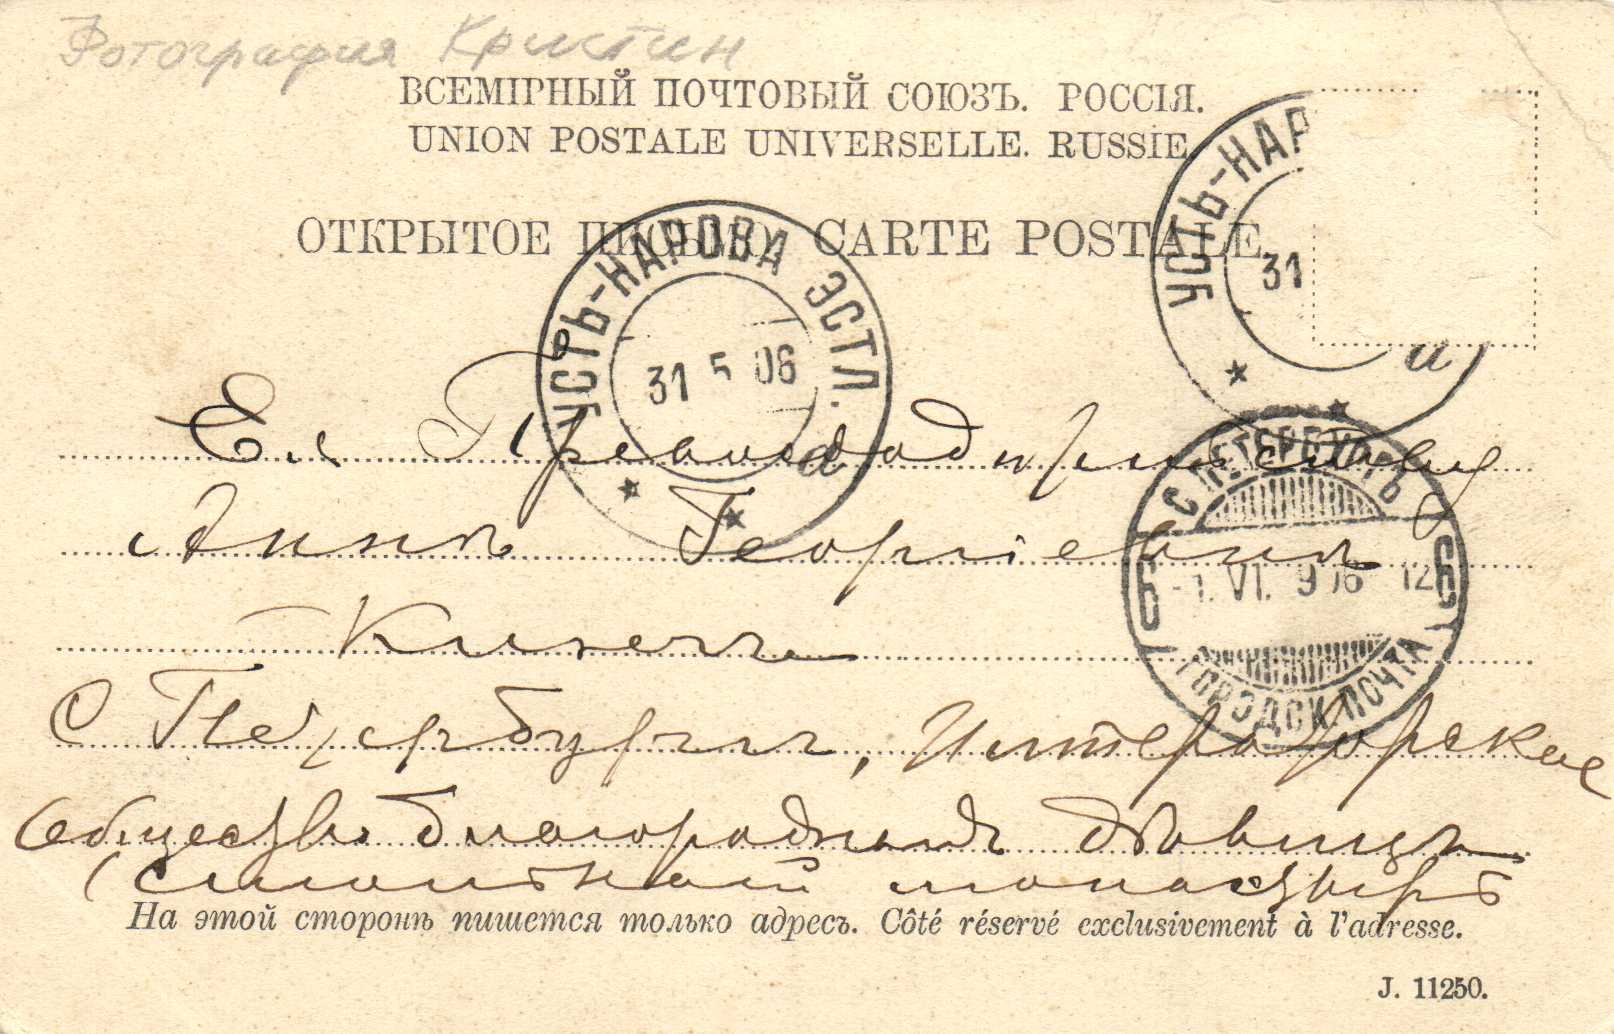 Фотография Кристин
ВСЕМІРНЫЙ ПОЧТОВЫЙ СОЮЗЪ. РОССІЯ.
UNION POSTALE UNIVERSELLE. RUSSIE.
ОТКРЫТОЕ ПИСЬМО. CARTE POSTALE.
УСТЬ-НАРОВА ЭСТЛ.
31 5 06
а
УСТЬ-НАР
31
а
С.ПЕТЕРБУРГЪ
6 -1.VI.906 12 6
ГОРОДСК. ПОЧТА
Ея Превосходительству
Аннѣ Георгіевнѣ
С Петербургъ, Императорское
Общество благородныхъ дѣвицъ
(Смольный монастырь
На этой сторонѣ пишется только адресъ. Côté réservé exclusivement à l'adresse.
J. 11250.